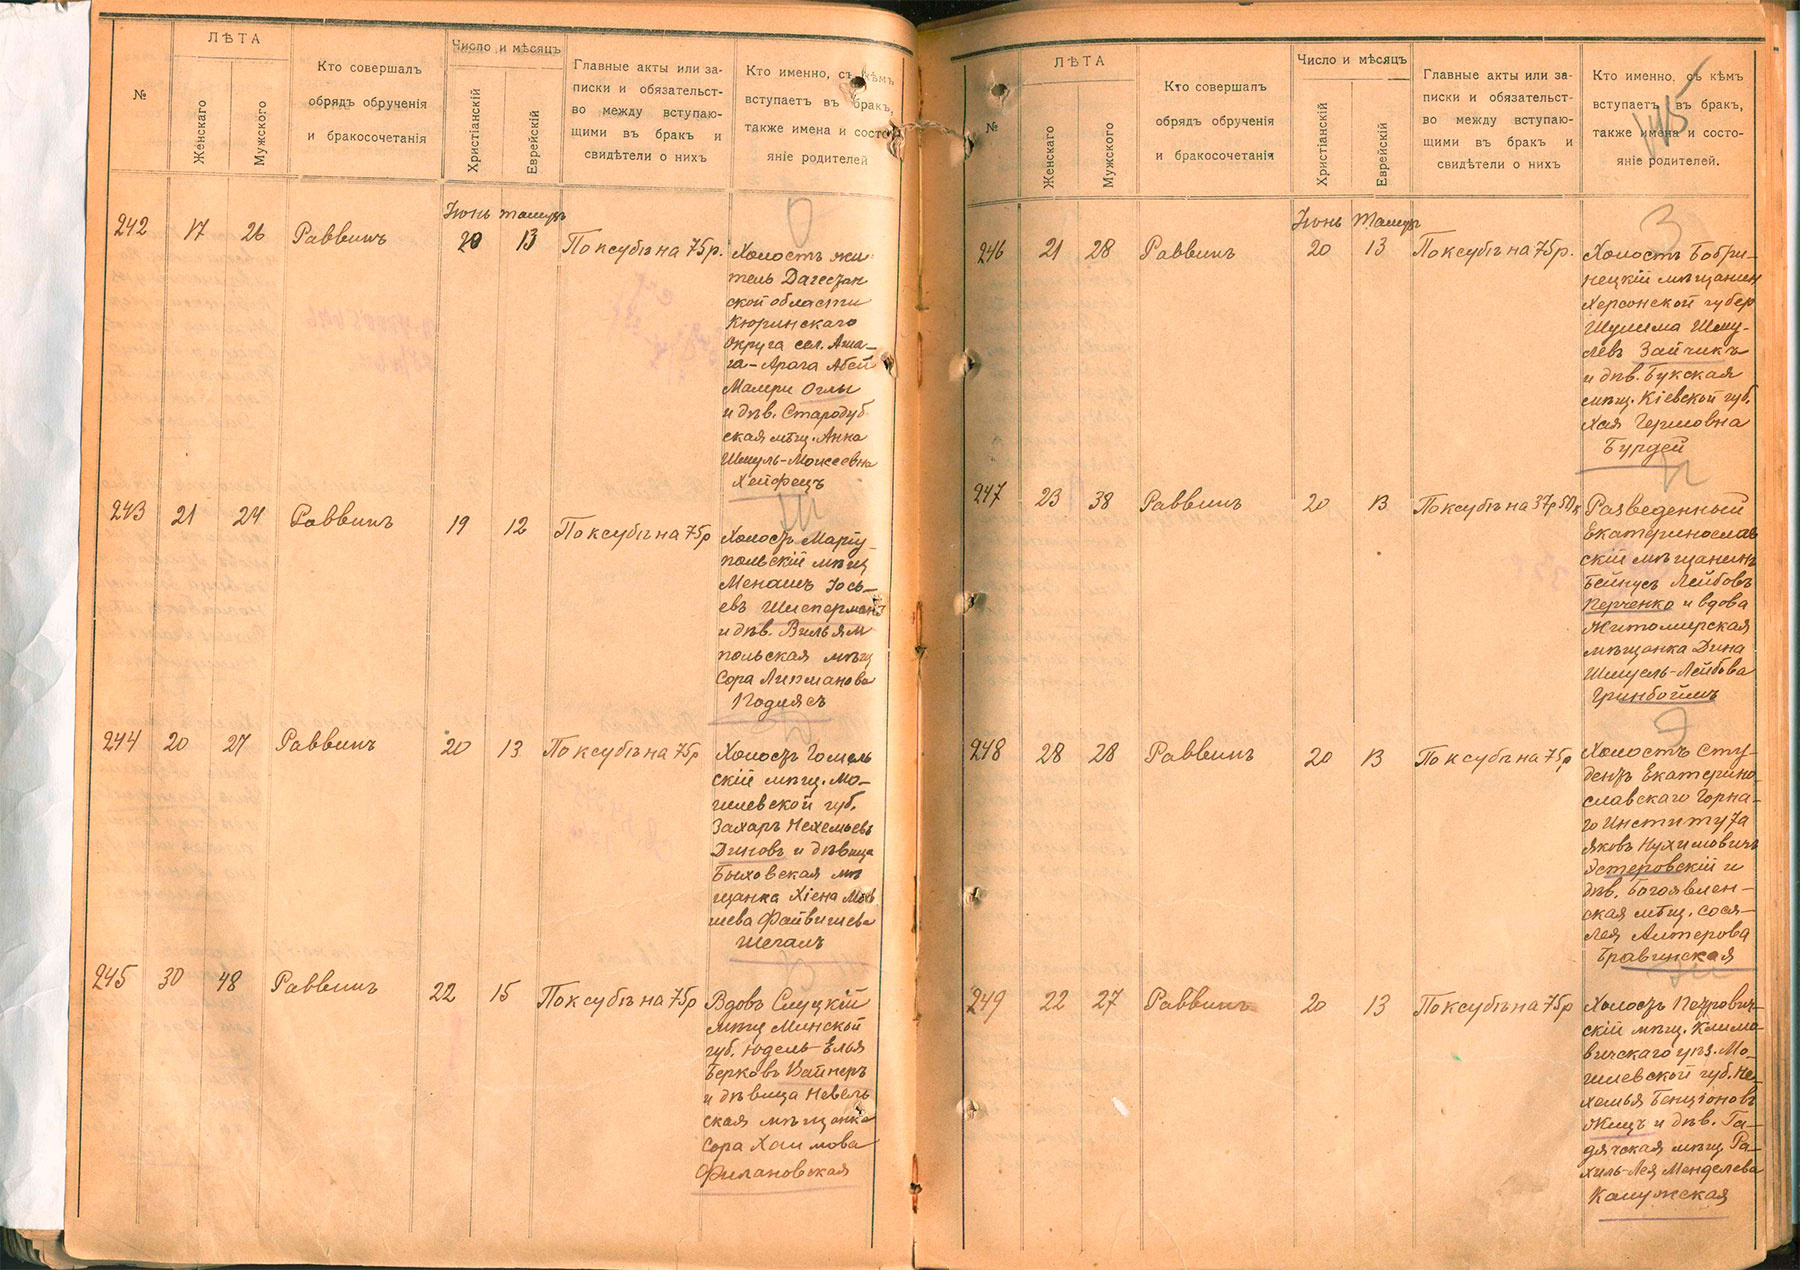 №
ЛѢТА
Женскаго
Мужского
Кто совершалъ
обрядъ обрученія
и бракосочетанія
Число и мѣсяцъ
Христіанскій
Еврейскій
Главные акты или за-
писки и обязательст-
во между вступаю-
щими въ бракъ и
свидѣтели о нихъ
Кто именно, съ кѣмъ
вступаетъ въ бракъ,
также имена и состо-
яніе родителей
242 17 26 Раввинъ
Іюнь Тамузъ
20 13 По ксубѣ на 75 р.
О
Холостъ жи-
тель Дагестан
ской области
Кюринскаго
округа сел. Ашa-
га-Арага Абей
Малери Оглы
и дѣв. Стародуб
ская мѣщ. Анна
Шмуль-Мовсеевна
Хейфецъ
243 21 24 Раввинъ 19 12 По ксубѣ на 75 р
Холостъ Маріу-
польскій мѣщ
Менашъ Іось-
евъ Шисперманъ
и дѣв. Вильям
польская мѣщ
Сора Липманова
Подлясъ
244 20 27 Раввинъ 20 13 По ксубѣ на 75 р
Холостъ Гомель
скій мѣщ. Мо-
гилевской губ.
Захаръ Нехемьевъ
Диновъ и дѣвица
Быховская мѣ
щанка Хіена
шева Файвишева
Шегалъ
245 30 48 Раввинъ 22 15 По ксубѣ на 75 р
Вдовъ Слуцкій
мѣщ Минской
губ. Юдель-Елья
Берковъ Вайнеръ
и дѣвица Невель
ская мѣщанка
Сора Хаимова
Филановская
№
ЛѢТА
Женскаго
Мужского
Кто совершалъ
обрядъ обрученія
и бракосочетанія
Число и мѣсяцъ
Христіанскій
Еврейскій
Главные акты или за-
писки и обязательст-
во между вступаю-
щими въ бракъ и
свидѣтели о нихъ
Кто именно, съ кѣмъ
вступаетъ въ бракъ,
также имена и состо-
яніе родителей.
145
246 21 28 Раввинъ
Іюнь Тамузъ
20 13 По ксубѣ на 75 р.
З
Холостъ Бобри-
нецкій мѣщанин
Херсонской губер
Шулима Шму-
левъ Зайчикъ
и дѣв. Букская
мѣщ. Кіевской губ.
Хая Гершовна
Бурдей
247 23 38 Раввинъ 20 13 По ксубѣ на 37 р 50 к
П
Разведенный
Екатеринослав
скій мѣщанинъ
Бейнусъ Лейбовъ
Перченко и вдова
Житомирская
мѣщанка Дина
Шмуель-Лейбова
Гринбоймъ
248 28 28 Раввинъ 20 13 По ксубѣ на 75 р
Э
Холостъ сту-
дентъ Екатерино-
славскаго Горна-
го Института
Яковъ Нухимовичъ
Эстеровскій и
дѣв. Богоявлен-
ская мѣщ. Сося-
Лея Алтерова
Бравинская
249 22 27 Раввинъ 20 13 По ксубѣ на 75 р
Холостъ Петрович-
скій мѣщ. Климо-
вичскаго уѣз. Мо-
гилевской губ. Не-
хемья Бенціоновъ
Жицъ и дѣв. Га-
дячская мѣщ. Ра-
хиль-Лея Менделева
Калужская